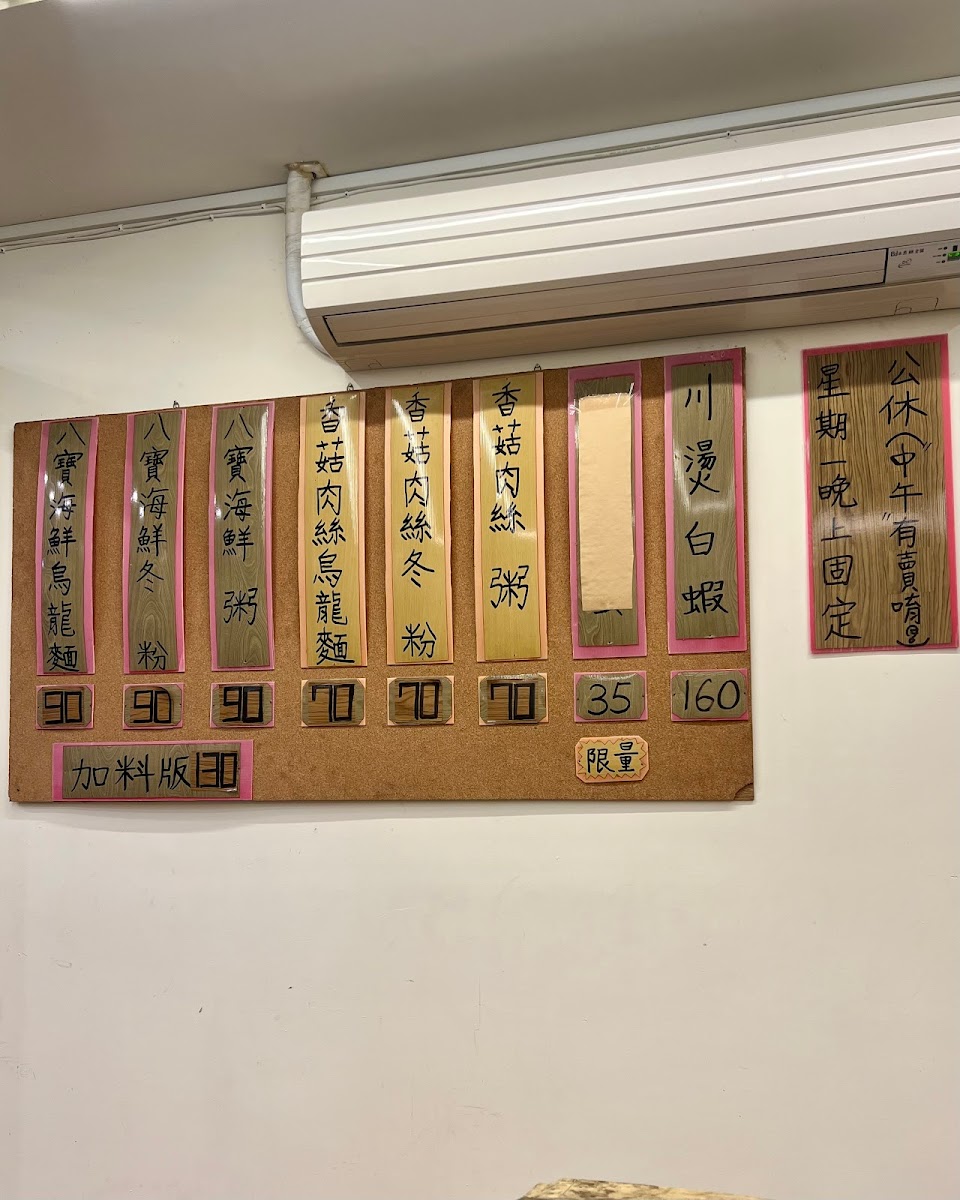 八寶海鮮烏龍麵
90
八寶海鮮冬粉
90
八寶海鮮粥
90
香菇肉絲烏龍麵
70
香菇肉絲冬粉
70
香菇肉絲粥
70
35
限量
川燙白蝦
160
加料版130
星期一晚上固定
公休("中午"有賣唷!)